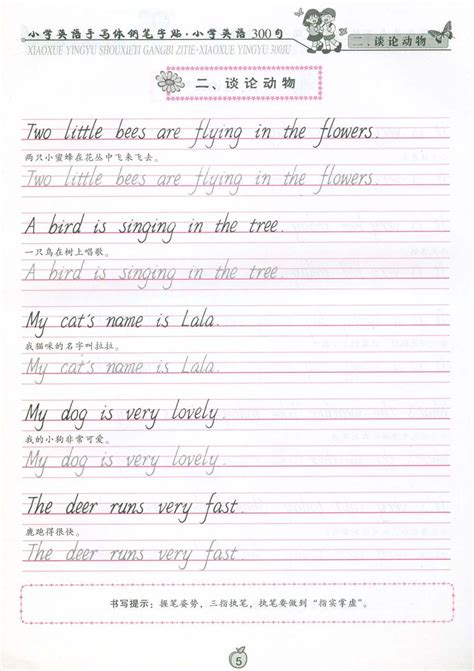 小学英语手写体钢笔字贴·小学英语 300句
XIAOXUE YINGYU SHOUXIETI GANGBI ZITIE·XIAOXUE YINGYU 300JU
二、谈论动物
二、谈论动物
Two little bees are flying in the flowers.
两只小蜜蜂在花丛中飞来飞去。
Two little bees are flying in the flowers.
A bird is singing in the tree.
一只鸟在树上唱歌。
A bird is singing in the tree.
My cat's name is Lala.
我猫咪的名字叫拉拉。
My cat's name is Lala.
My dog is very lovely.
我的小狗非常可爱。
My dog is very lovely.
The deer runs very fast.
鹿跑得很快。
The deer runs very fast.
书写提示：握笔姿势，三指执笔，执笔要做到“指实掌虚”。
5